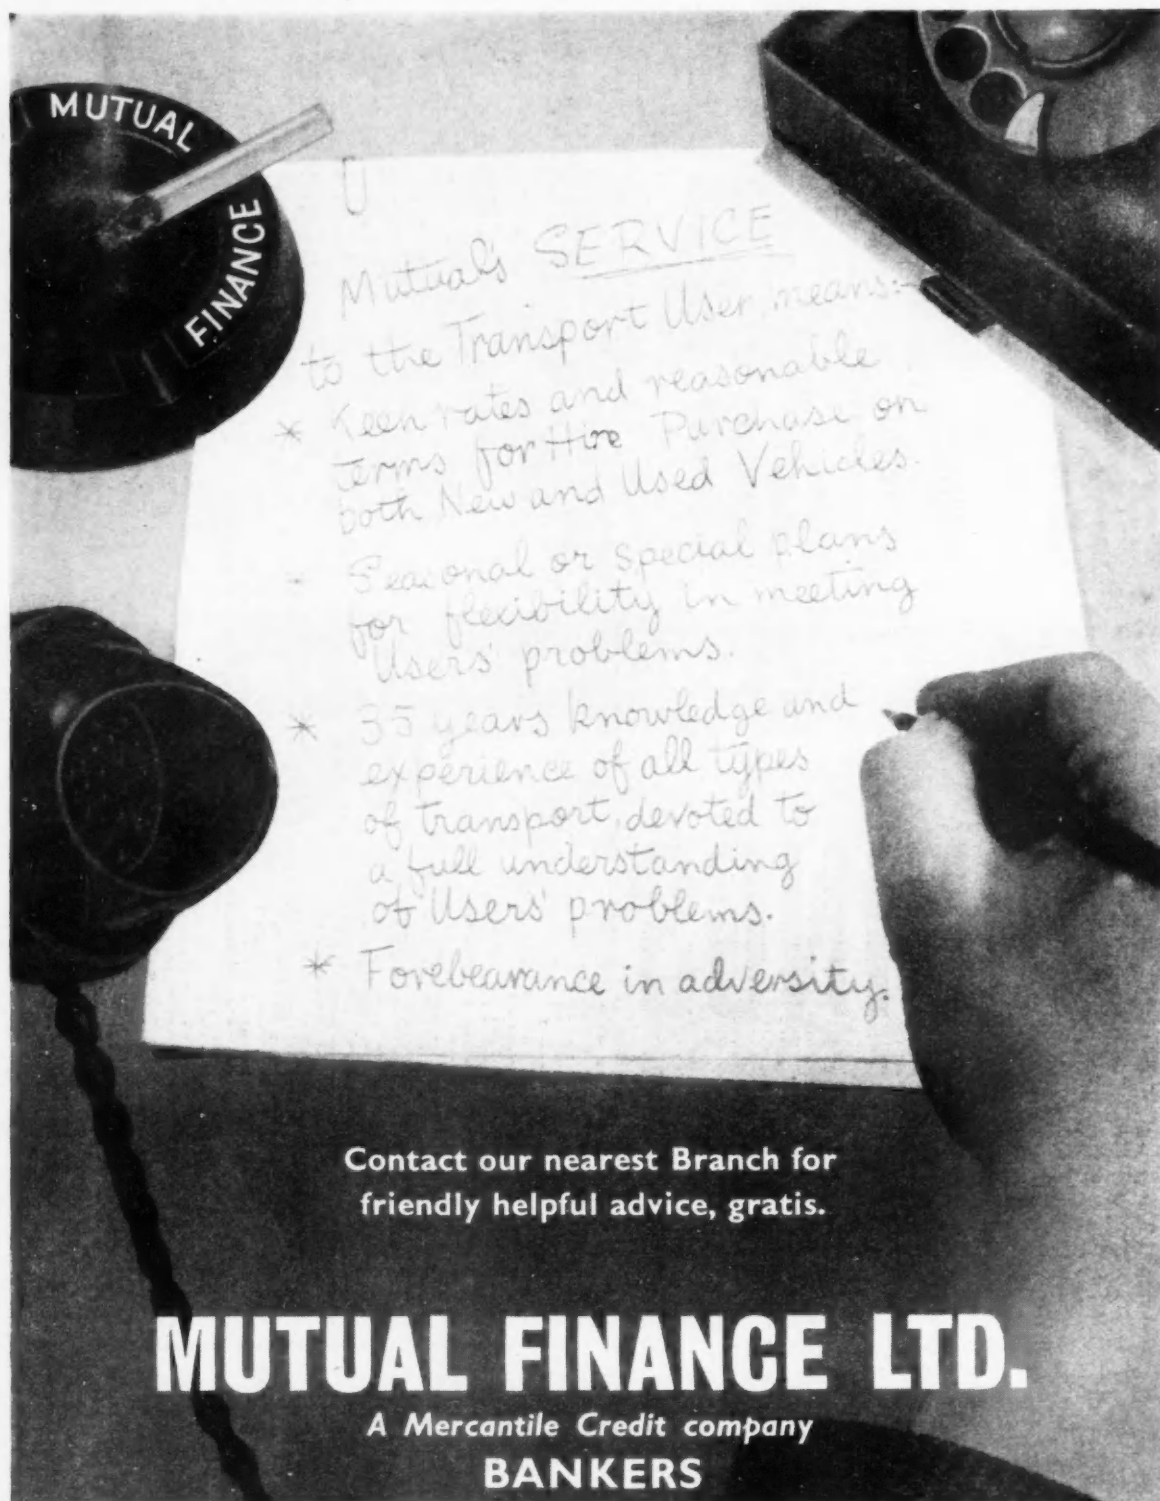 MUTUAL
FINANCE
Mutual's SERVICE
to the Transport User, means:-
* Keen rates and reasonable
terms for Hire Purchase on
both New and Used Vehicles.
* Seasonal or special plans
for flexibility in meeting
Users' problems.
* 35 years knowledge and
experience of all types
of transport, devoted to
a full understanding
of Users' problems.
* Forebearance in adversity.
Contact our nearest Branch for
friendly helpful advice, gratis.
MUTUAL FINANCE LTD.
A Mercantile Credit company
BANKERS